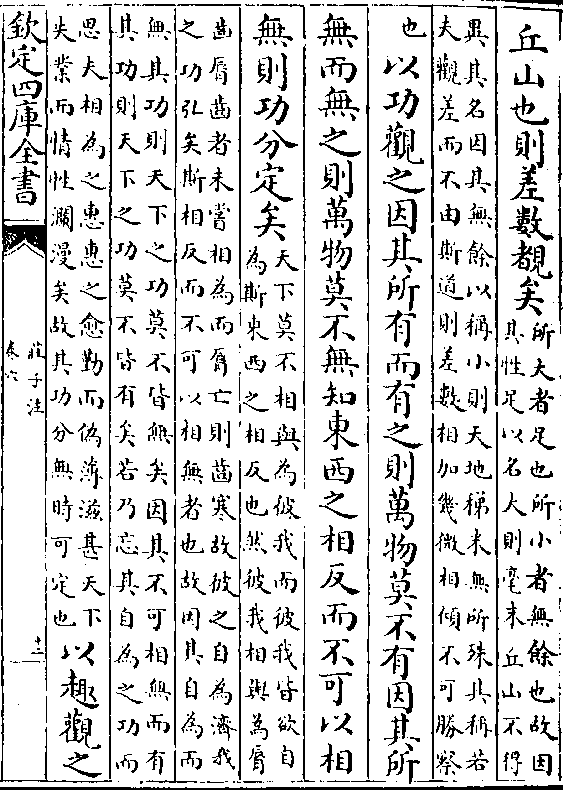 丘山也則差數覩矣
所大者足也所小者無餘也故因
其性足以名大則毫末丘山不得
異其名因其無餘以稱小則天地稊米無所殊其稱若
夫觀差而不由斯道則差數相加幾微相傾不可勝察
也
以功觀之因其所有而有之則萬物莫不有因其所
無而無之則萬物莫不無知東西之相反而不可以相
無則功分定矣
天下莫不相與為彼我而彼我皆欲自
為斯東西之相反也然彼我相與為脣
齒脣齒者未嘗相為而脣亡則齒寒故彼之自為濟我
之功弘矣斯相反而不可以相無者也故因其自為而
無其功則天下之功莫不皆無矣因其不可相無而有
其功則天下之功莫不皆有矣若乃忘其自為之功而
思夫相為之惠惠之愈勤而偽薄滋甚天下
失業而情性瀾漫矣故其功分無時可定也
以趣觀之
欽定四庫全書
莊子注
卷六
十二